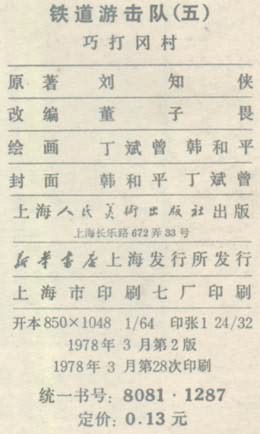 铁道游击队(五)
巧打冈村
原著 刘知侠
改编 董子畏
绘画 丁斌曾 韩和平
封面 韩和平 丁斌曾
上海人民美術出版社出版
上海长乐路672弄33号
新華書店上海发行所发行
上海市印刷七厂印刷
开本850×1048 1/64 印张1 24/32
1978年3月第2版
1978年3月第28次印刷
统一书号:8081·1287
定价:0.13元